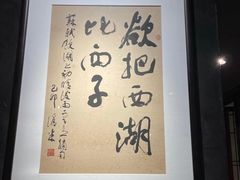 欲把西湖
比西子
蘇軾飲湖上初晴後雨二首之一
己卯